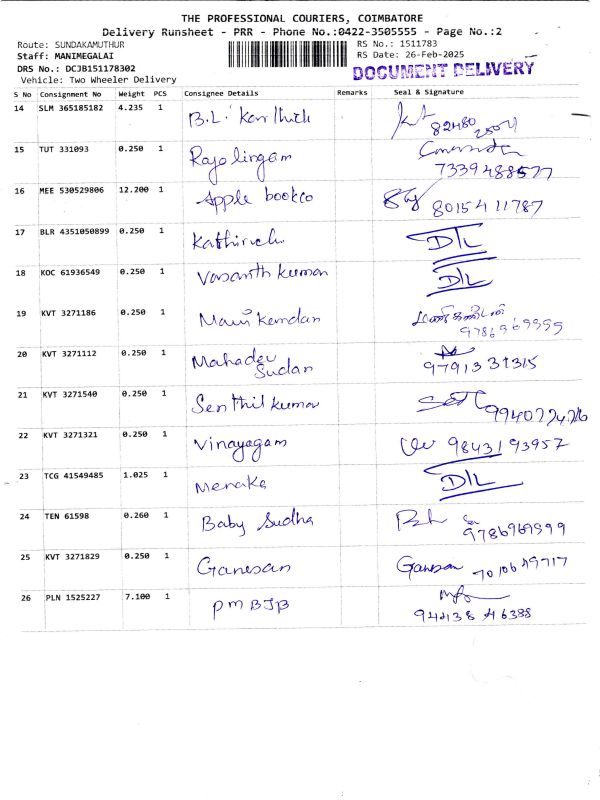 THE PROFESSIONAL COURIERS, COIMBATORE
Delivery Runsheet - PRR - Phone No.:0422-3505555 - Page No.:2
Route: SUNDAKAMUTHUR RS No.: 1511783
Staff: MANIMEGALAI RS Date: 26-Feb-2025
DRS No.: DCJB151178302 DOCUMENT DELIVERY
Vehicle: Two Wheeler Delivery
S No Consignment No Weight PCS Consignee Details Remarks Seal & Signature
14 SLM 365185182 4.235 1 B.L. Karthick
82480
15 TUT 331093 0.250 1 Rajalingam
16 MEE 530529806 12.200 1 Apple bookco 8015411787
17 BLR 4351050899 0.250 1 Kathirvel D/L
18 KOC 61936549 0.250 1 Vasanth kumar D/L
19 KVT 3271186 0.250 1 Mani Kandan மணிகண்டன்
9786969999
20 KVT 3271112 0.250 1 Mahadev
Sudan 9791331315
21 KVT 3271540 0.250 1 Senthil kumar
22 KVT 3271321 0.250 1 Vinayagam 9843193957
23 TCG 41549485 1.025 1 Menaka D/L
24 TEN 61598 0.260 1 Baby Sudha
9786969999
25 KVT 3271829 0.250 1 Ganesan Ganesan 7010649717
26 PLN 1525227 7.100 1 PM BJB
94438 46388